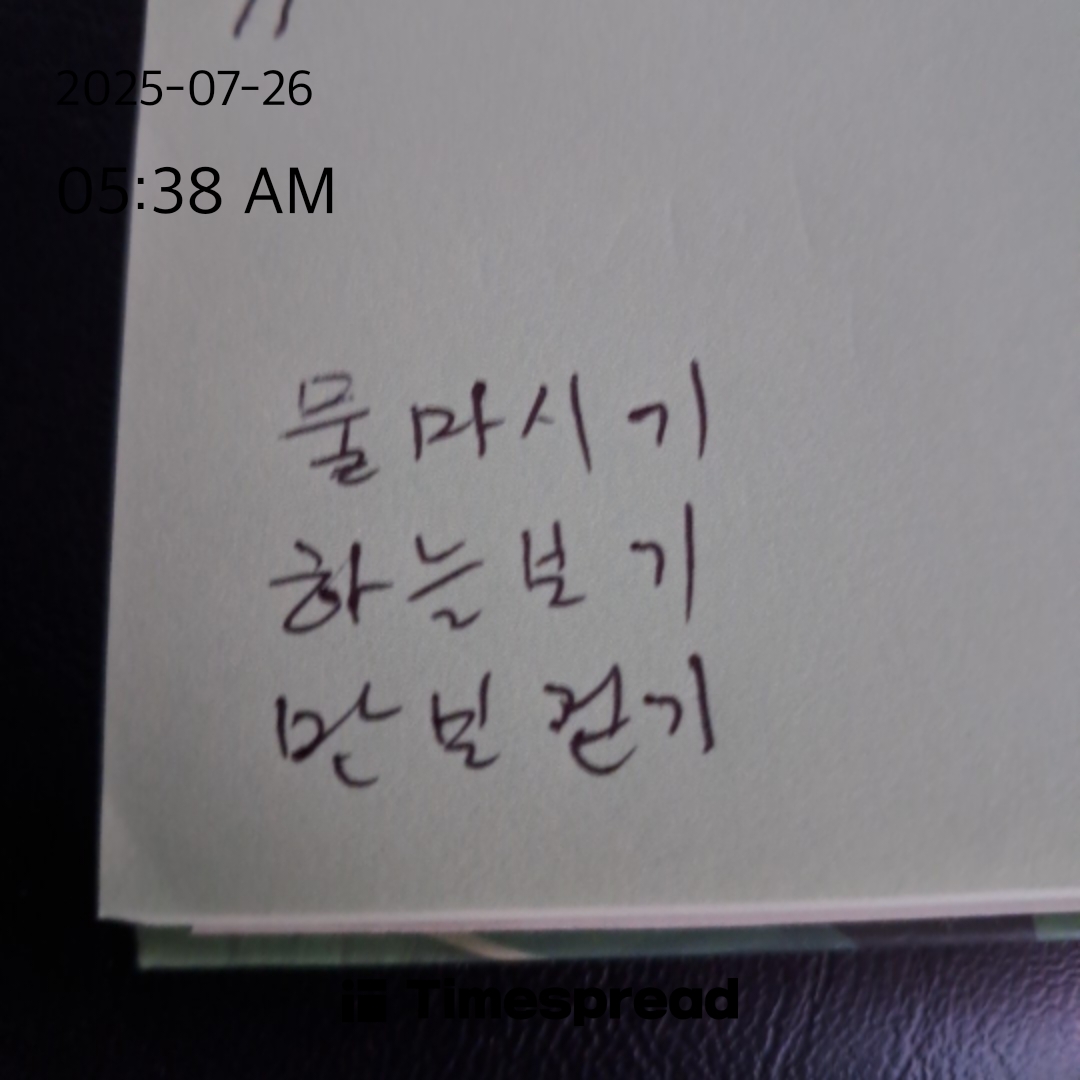 2025-07-26
05:38 AM
물 마시기
하늘 보기
만보 걷기
Timespread